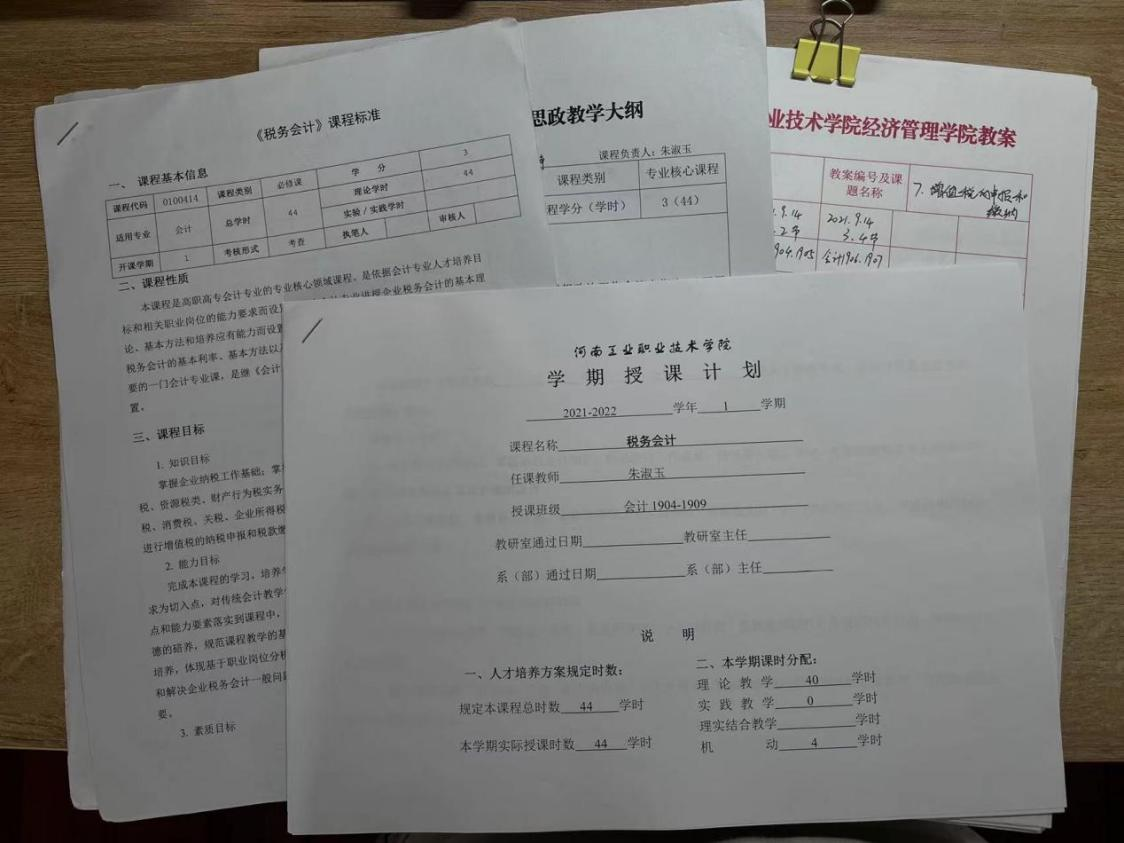 《税务会计》课程标准
一、 课程基本信息
课程代码 0100414 课程类别 必修课 学 分 3
适用专业 会计 总学时 44 理论学时 44
实验/实践学时
开课学期 1 考核形式 考查 执笔人 审核人
二、课程性质
本课程是高职高专会计专业的专业核心领域课程，是依据会计专业人才培养目
标和相关职业岗位的能力要求而设
论、基本方法和培养应有能力而设置
税务会计的基本利率、基本方法以
要的一门会计专业课，是继《会计
置。
三、课程目标
1. 知识目标
掌握企业纳税工作基础；掌
税、资源税类、财产行为税实务
税、消费税、关税、企业所得税
进行增值税的纳税申报和税款缴
2. 能力目标
完成本课程的学习，培养
求为切入点，对传统会计教学
点和能力要素落实到课程中，
德的研养，规范课程教学的基
培养，体现基于职业岗位分
和解决企业税务会计一般问
要。
3. 素质目标
思政教学大纲
课程负责人：朱淑玉
课程类别 专业核心课程
程学分（学时） 3（44）
业技术学院经济管理学院教案
教案编号及课
题名称
7. 增值税的申报和
缴纳
.9.14 2021.9.14
.2节 3.4节
904.1905 会计1906.1907
河南工业职业技术学院
学 期 授 课 计 划
2021-2022 学年 1 学期
课程名称 税务会计
任课教师 朱淑玉
授课班级 会计 1904-1909
教研室通过日期 教研室主任
系（部）通过日期 系（部）主任
说 明
一、人才培养方案规定时数：
规定本课程总时数 44 学时
本学期实际授课时数 44 学时
二、本学期课时分配：
理 论 教 学 40 学时
实 践 教 学 0 学时
理实结合教学 学时
机 动 4 学时